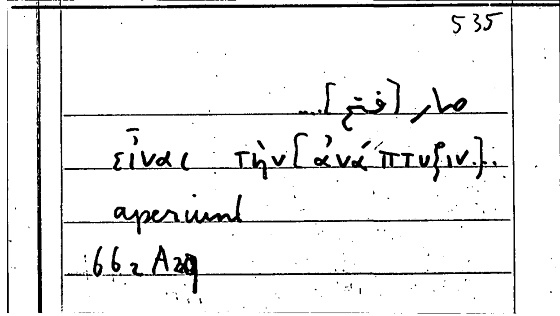 535
صار [فتح]...
εἶναι τὴν [ἀνάπτυξιν]..
aperiunt
66₂ A20